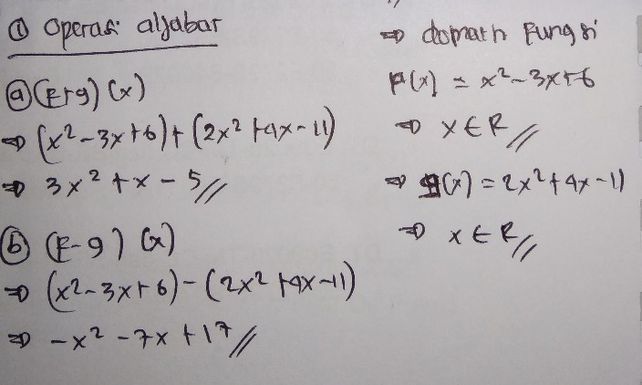 ① Operasi aljabar
ⓐ (F+g) (x)
⇒ (x² - 3x + 6) + (2x² + 4x - 11)
⇒ 3x² + x - 5 //
ⓑ (F-g) (x)
⇒ (x² - 3x + 6) - (2x² + 4x - 11)
⇒ -x² - 7x + 17 //
⇒ domain Fungsi
F(x) = x² - 3x + 6
⇒ x ∈ R //
⇒ g(x) = 2x² + 4x - 11
⇒ x ∈ R //